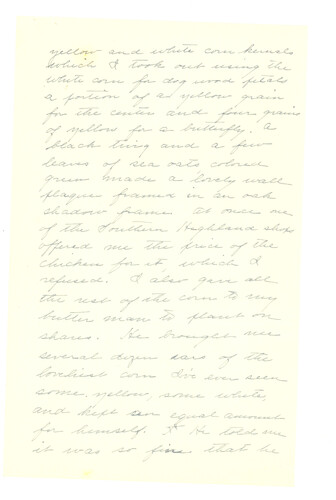 yellow and white corn kernels
which I took out using the
white corn for dog wood petals
a portion of a yellow grain
for the center and four grains
of yellow for a butterfly. A
black thing and a few
leaves of sea oats colored
green made a lovely wall
plaque framed in an oak
shadow frame. At once one
of the Southern Highland shops
offered me the price of the
chicken for it, which I
refused. I also gave all
the rest of the corn to my
butter man to plant on
shares. He brought me
several dozen ears of the
loveliest corn I've ever seen
some yellow, some white,
and kept an equal amount
for himself. He told me
it was so fine that he